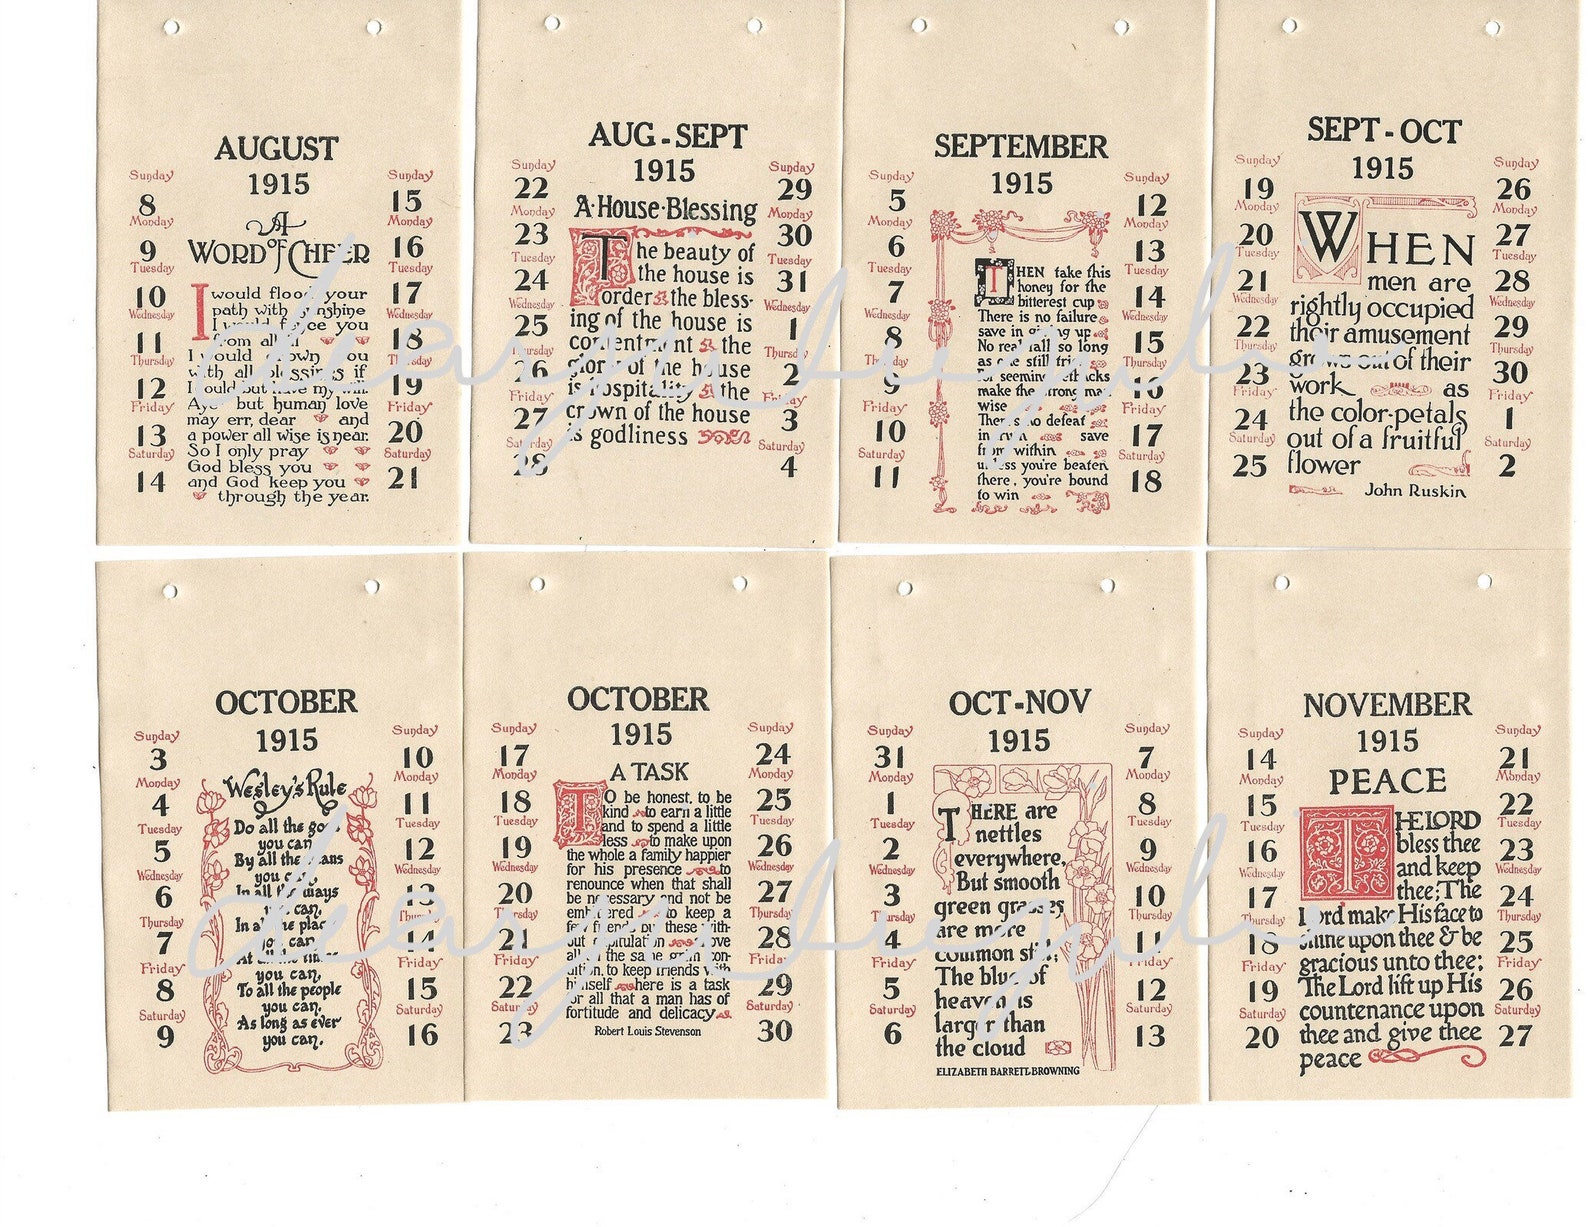 AUGUST
1915
Sunday
8
Monday
9
Tuesday
10
Wednesday
11
Thursday
12
Friday
13
Saturday
14
A
WORD OF CHEER
I would flood your
path with sunshine
I would fence you
from all ill
I would crown you
with all blessings if
I could but have my will.
Aye but human love
may err, dear and
a power all wise is near.
So I only pray
God bless you
and God keep you
through the year.
Sunday
15
Monday
16
Tuesday
17
Wednesday
18
Thursday
19
Friday
20
Saturday
21
AUG-SEPT
1915
Sunday
22
Monday
23
Tuesday
24
Wednesday
25
Thursday
26
Friday
27
Saturday
28
A·House·Blessing
The beauty of
the house is
order the bless-
ing of the house is
contentment the
glory of the house
is hospitality the
crown of the house
is godliness
Sunday
29
Monday
30
Tuesday
31
Wednesday
1
Thursday
2
Friday
3
Saturday
4
SEPTEMBER
1915
Sunday
5
Monday
6
Tuesday
7
Wednesday
8
Thursday
9
Friday
10
Saturday
11
THEN take this
honey for the
bitterest cup
There is no failure
save in giving up
No real fall so long
as one still tries
For seeming setbacks
make the strong man
wise
There's no defeat
in truth save
from within
unless you're beaten
there, you're bound
to win
Sunday
12
Monday
13
Tuesday
14
Wednesday
15
Thursday
16
Friday
17
Saturday
18
SEPT-OCT
1915
Sunday
19
Monday
20
Tuesday
21
Wednesday
22
Thursday
23
Friday
24
Saturday
25
WHEN
men are
rightly occupied
their amusement
grows out of their
work as
the color-petals
out of a fruitful
flower
John Ruskin
Sunday
26
Monday
27
Tuesday
28
Wednesday
29
Thursday
30
Friday
1
Saturday
2
OCTOBER
1915
Sunday
3
Monday
4
Tuesday
5
Wednesday
6
Thursday
7
Friday
8
Saturday
9
Wesley's Rule
Do all the good
you can
By all the means
you can,
In all the ways
you can,
In all the places
you can,
At all the times
you can,
To all the people
you can,
As long as ever
you can.
Sunday
10
Monday
11
Tuesday
12
Wednesday
13
Thursday
14
Friday
15
Saturday
16
OCTOBER
1915
Sunday
17
Monday
18
Tuesday
19
Wednesday
20
Thursday
21
Friday
22
Saturday
23
A TASK
TO be honest, to be
kind to earn a little
and to spend a little
less to make upon
the whole a family happier
for his presence to
renounce when that shall
be necessary and not be
embittered to keep a
few friends but these with-
out capitulation above
all on the same grim con-
dition, to keep friends with
himself here is a task
for all that a man has of
fortitude and delicacy
Robert Louis Stevenson
Sunday
24
Monday
25
Tuesday
26
Wednesday
27
Thursday
28
Friday
29
Saturday
30
OCT-NOV
1915
Sunday
31
Monday
1
Tuesday
2
Wednesday
3
Thursday
4
Friday
5
Saturday
6
THERE are
nettles
everywhere,
But smooth
green grasses
are more
common still;
The blue of
heaven is
larger than
the cloud
ELIZABETH BARRETT BROWNING
Sunday
7
Monday
8
Tuesday
9
Wednesday
10
Thursday
11
Friday
12
Saturday
13
NOVEMBER
1915
Sunday
14
Monday
15
Tuesday
16
Wednesday
17
Thursday
18
Friday
19
Saturday
20
PEACE
THE LORD
bless thee
and keep
thee; The
Lord make His face to
shine upon thee & be
gracious unto thee;
The Lord lift up His
countenance upon
thee and give thee
peace
Sunday
21
Monday
22
Tuesday
23
Wednesday
24
Thursday
25
Friday
26
Saturday
27